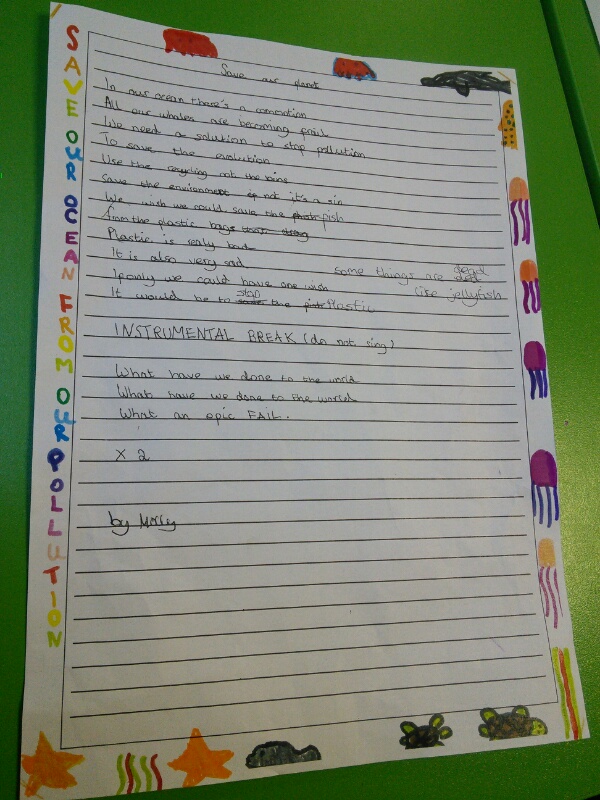 SAVE OUR OCEAN FROM OUR POLLUTION
Save our planet
In our ocean there's a commotion
All our whales are becoming frail
We need a solution to stop pollution
To save the evolution
Use the recycling not the bins
Save the environment if not it's a sin
We wish we could save the fish
from the plastic bags
Plastic is realy bad
It is also very sad
some things are dead
like jellyfish
If only we could have one wish
It would be to stop the Plastic
INSTRUMENTAL BREAK (do not sing)
What have we done to the world
What have we done to the world
What an epic FAIL.
X 2
by Missy